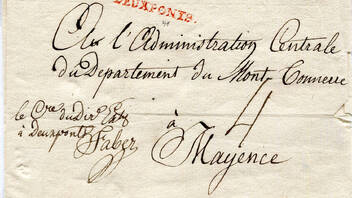 DEUXPONTS.
A l'Administration Centrale
du Departement du Mont-Tonnerre
4
le du Dir
à Deuxponts
Faber
à
Mayence